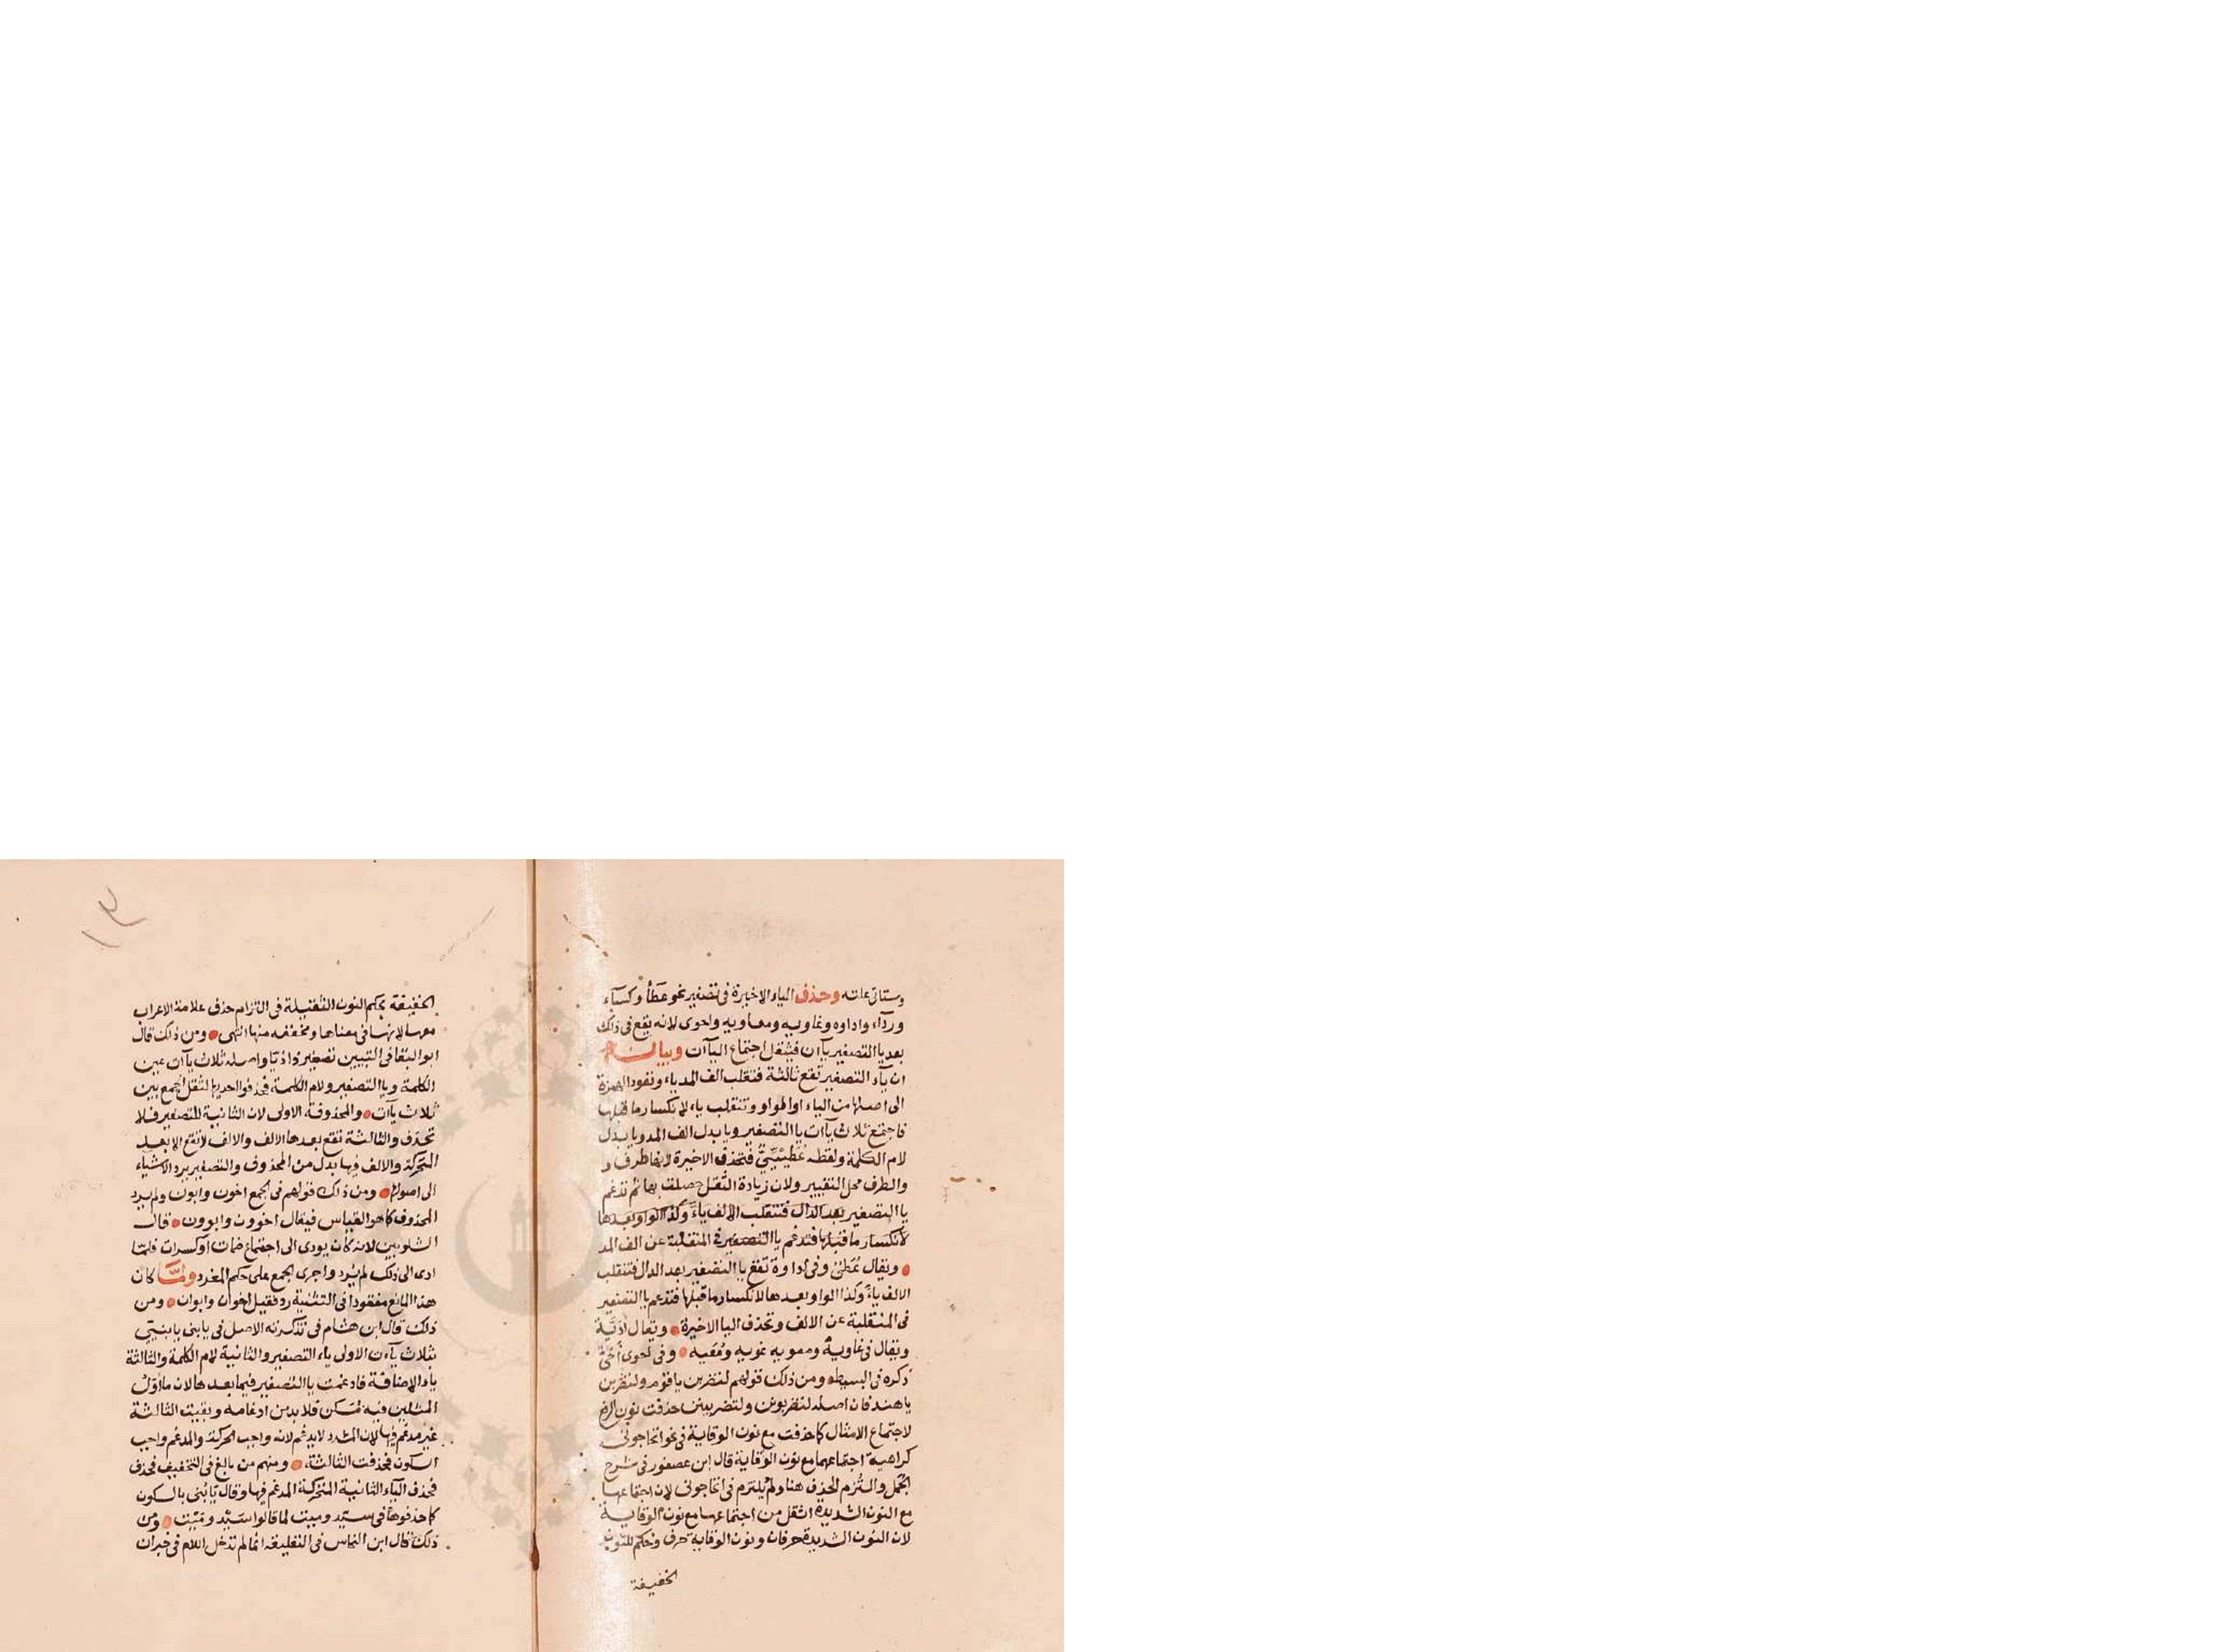 وستاتى علته وحذف الياء الاخيرة فى تصغير نحو عطاء وكساء
وردآء واداوه وغاويه ومعاويه واحوى لانه يقع فى ذلك
بعد يا التصغير يآان فيثقل اجتماع اليآآت وبيانه
ان يآء التصغير تقع ثالثة فتقلب الف المد ياء وتعود الهمزة
الى اصلها من الياء او الواو وتنقلب ياء لانكسار ما قبلها
فاجتمع ثلاث يآآت يا التصغير ويا بدل الف المد ويا بدل
لام الكلمة ولفظه عطييي فتحذف الاخيرة لانها طرف و
والطرف محل التغيير ولان زيادة الثقل حصلت بها ثم تدغم
يا التصغير بعد الدال فتنقلب الالف ياءً وكذا الواو بعدها
لانكسار ما قبلها فتدغم يا التصغير فى المنقلبة عن الف المد
ويقال عُطَىّ وفى اداوة تقع يا التصغير بعد الدال فتنقلب
الالف ياءً وكذا الواو بعدها لانكسار ما قبلها فتدغم يا التصغير
فى المنقلبة عن الالف وتحذف اليا الاخيرة ويقال اُدَيَّة
ويقال فى غاوية ومعويه غويه ومُعَيه وفى احوى اُحَىّ
ذكره فى البسيط ومن ذلك قولهم لتضربن يا قوم ولتضربن
يا هند فان اصله لتضربونن ولتضربينن حذفت نون الرفع
لاجتماع الامثال كما حذفت مع نون الوقاية فى نحو اتحاجونى
كراهية اجتماعها مع نون الوقاية قال ابن عصفور فى شرح
الجمل والتُزم الحذف هنا ولم يلتزم فى اتحاجونى لان اجتماعها
مع النون الشديدة اثقل من اجتماعها مع نون الوقاية
لان النون الشديدة حرفان ونون الوقاية حرف وحكم للنون
الخفيفة
١٣
الخفيفة بحكم النون الثقيلة فى التزام حذف علامة الاعراب
معها لانها فى معناها ومخففه منها انتهى ومن ذلك قال
ابو البقا فى التبيين تصغير ذا ذيّا واصله ثلاث يآآت عين
الكلمة ويا التصغير ولام الكلمة فحذفوا احديها لثقل الجمع بين
ثلاث يآآت والمحذوفة الاولى لان الثانية للتصغير فلا
تحذف والثالثة تقع بعدها الالف والالف لا تقع الا بعد
المتحركة والالف فيها بدل من المحذوف والتصغير يرد الاشياء
الى اصولها ومن ذلك قولهم فى الجمع اخون وابون ولم يرد
المحذوف كما هو القياس فيقال اخوون وابوون قال
الشلوبين لانه كان يودى الى اجتماع ضمات او كسرات فلمّا
ادى الى ذلك لم يُرد واجرى الجمع على حكم المفرد ولمَّا كان
هذا المانع مفقودا فى التثنية رد فقيل اخوان وابوان ومن
ذلك قال ابن هشام فى تذكرته الاصل فى يا بنى يا بنيي
بثلاث يآءت الاولى ياء التصغير والثانية لام الكلمة والثالثة
ياء الاضافة فادغمت يا التصغير فيما بعدها لان ما اول
المثلين فيه مُسَكن فلا بد من ادغامه وبقيت الثالثة
غير مدغم فيها لان المشدد لا يدغم لانه واجب الحركة والمدغم واجب
السكون فحذفت الثالثة ومنهم من بالغ فى التخفيف فحذف
فحذف الياء الثانية المتحركة المدغم فيها وقال يا بُنى بالسكون
كما حذفوها فى سيّد وميت لما قالوا سَيْد ومَيْت ومن
ذلك قال ابن النحاس فى التعليقة انما لم تدخل اللام فى خبر ان